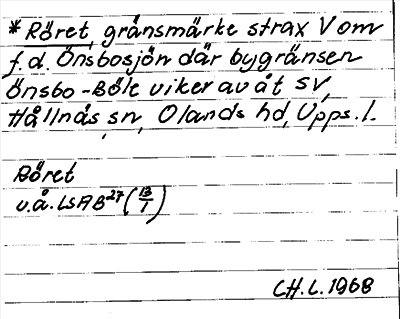 *Röret, gränsmärke strax V om
f.d. Önsbosjön där bygränsen
Önsbo-Böle viker av åt SV,
Hållnäs sn, Olands hd, Upps. l.
Röret
u.å. LSA B27 (13/1)
CH.L. 1968